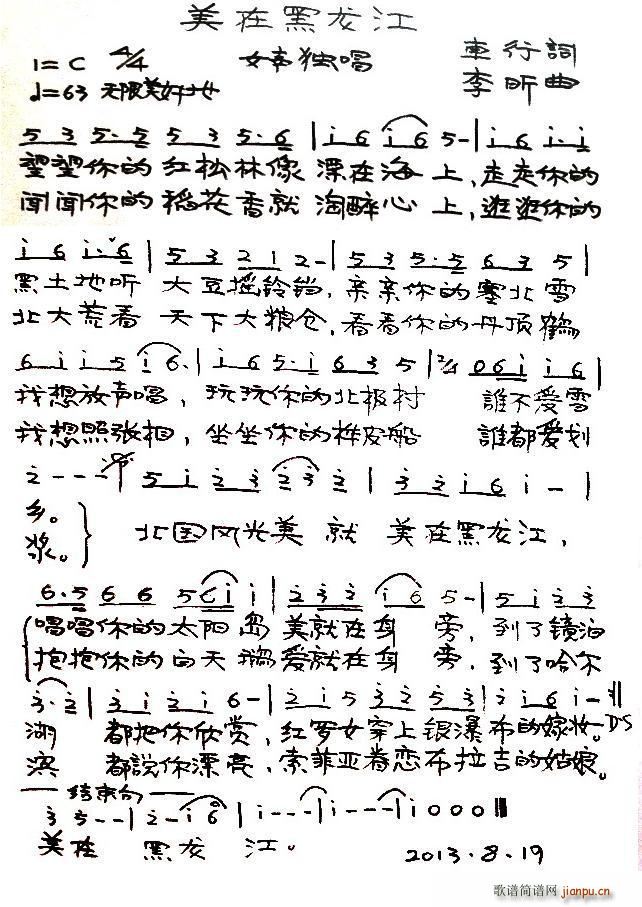 美在黑龙江
1=C 4/4 女声独唱 車行詞
♩=63 无限美好地 李昕曲
5 3 5·5 5 3 5·6 | i 6 i 6 5 - | i 6 i·i
望望你的红松林像 漂在海 上,走走你的
闻闻你的稻花香就 淘醉心 上,逛逛你的
i 6 i·6 | 5 3 2 1 2 - | 5 3 5·5 6 3 5 |
黑土地听 大豆摇铃铛,亲亲你的塞北雪
北大荒看 天下大粮仓,看看你的丹顶鹤
6 i i 5 i 6· | i 6 5·i 6 3 5 | 2/4 0 6 i i 6 |
我想放声唱,玩玩你的北极村 誰不爱雪
我想照张相,坐坐你的桦皮船 誰都爱划
2 - - - | 5 i 2 3 2 3 2 | 3 2 i 6 i - |
乡。
浆。
北国风光美 就 美在黑龙江,
6·5 6 6 5 6 i i | 2 3 2 i 6 5 - | 5 i 2 3
唱唱你的太阳岛 美就在身 旁,到了镜泊
抱抱你的白天鹅爱就在身 旁,到了哈尔
3·2 | 3 i 2 i 6 - | 2 i 5 3 2 5 3 | 2 i 6 i - :|| DS
湖 都把你欣赏,红罗女穿上银瀑布的嫁妆。
滨 都說你漂亮,索菲亚眷恋布拉吉的姑娘。
结束句
3 5 - - | 2 - i 6 | i - - - | i - - - | i 0 0 0 ||
美在 黑龙 江。 2013.8.19
歌谱简谱网 jianpu.cn